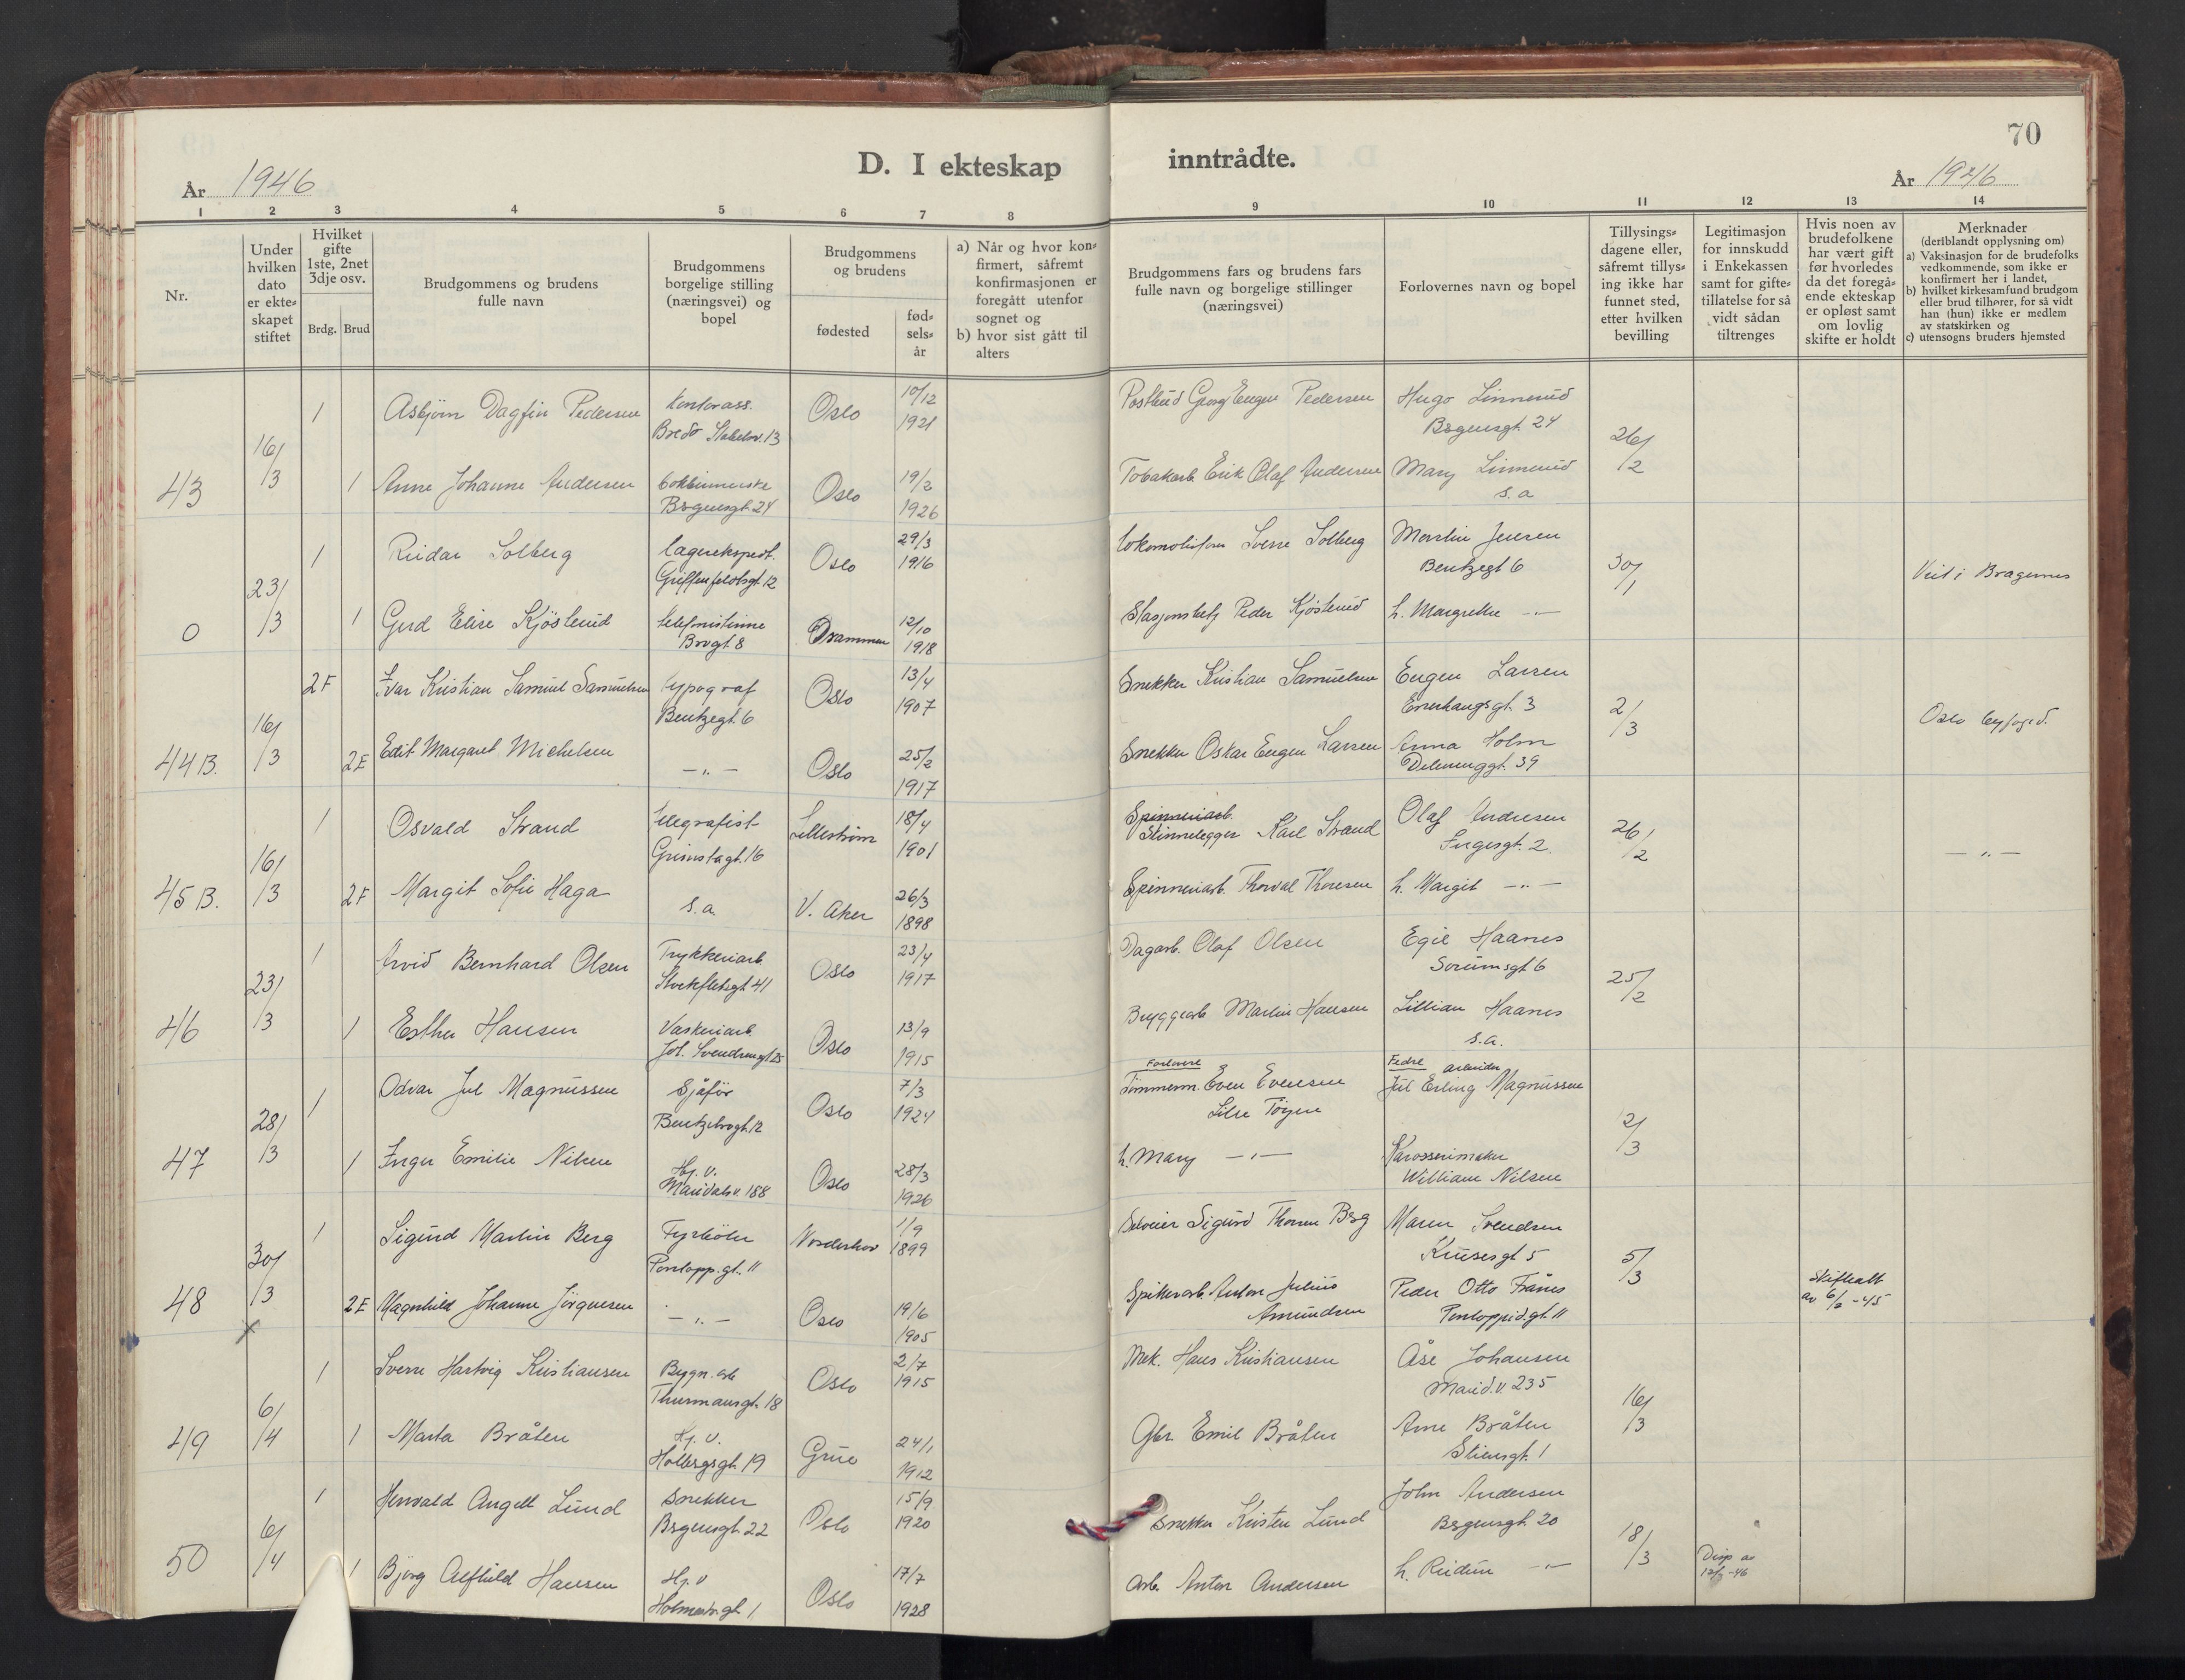 70
D. I ekteskap inntrådte.
År 1946
År 1946
1 2 3 4 5 6 7 8 9 10 11 12 13 14
Nr.
Under hvilken dato er ekteskapet stiftet
Hvilket gifte 1ste, 2net 3dje osv.
Brdg. Brud
Brudgommens og brudens fulle navn
Brudgommens borgelige stilling (næringsvei) og bopel
Brudgommens og brudens
fødested
fødselsår
a) Når og hvor konfirmert, såfremt konfirmasjonen er foregått utenfor sognet og
b) hvor sist gått til alters
Brudgommens fars og brudens fars fulle navn og borgelige stillinger (næringsvei)
Forlovernes navn og bopel
Tillysingsdagene eller, såfremt tillysing ikke har funnet sted, etter hvilken bevilling
Legitimasjon for innskudd i Enkekassen samt for giftetillatelse for så vidt sådan tiltrenges
Hvis noen av brudefolkene har vært gift før hvorledes da det foregående ekteskap er opløst samt om lovlig skifte er holdt
Merknader
(deriblandt opplysning om)
a) Vaksinasjon for de brudefolks vedkommende, som ikke er konfirmert her i landet,
b) hvilket kirkesamfund brudgom eller brud tilhører, for så vidt han (hun) ikke er medlem av statskirken og
c) utensogns bruders hjemsted
43 16/3 1 Asbjørn Dagfin Pedersen Kontorass. Oslo 10/12 1921 Postbud Georg Eugen Pedersen Hugo Linnerud 26/2
Bredo Stabelsv. 13 Bergensgt. 24
1 Anne Johanne Andersen Oslo 19/2 1926 Tobakarb. Erik Olaf Andersen Mary Linnerud
Bergensgt. 24 s.a
0 23/3 1 Reidar Solberg lagerekspedt. Oslo 29/3 1916 Sverre Solberg Jensen 30/1 Viet i Bragernes
Griffenfeldtsgt. 12 Bentzegt 6
1 Gerd Elise Kjøslerud telefonistinne Drammen 12/10 1918 Peder Kjøslerud h. Margrethe -"-
Brogt. 8
44B. 16/3 2F Ivar Kristian Samuel Samuelsen typograf Oslo 13/4 1907 Snekker Kristian Samuelsen Eugen Larsen 2/3 Oslo byfogd.
Bentzegt. 6 Enerhaugsgt. 3
2F Edit Margaret Michelsen -"- Oslo 25/2 1917 Snekker Oskar Eugen Larsen Anna Holm
Delenenggt. 39
45B. 16/3 1 Osvald Strand telegrafist Lillestrøm 18/4 1901 Spinneriarb. Karl Strand Olaf Andresen 26/2 -"-
Grimstagt. 16 Skinnelegger Ingesgt. 2.
2F Margit Sofie Haga s.a. V. Aker 26/3 1898 Spinneriarb. Thorval Thoresen h. Margit -"-
46 23/3 1 Arvid Bernhard Olsen Trykkeriarb. Oslo 23/4 1917 Dagarb. Olaf Olsen Egil Haanes 25/2
Stockfletsgt. 41 Sorumsgt 6
1 Esther Hansen Vaskeriarb. Oslo 13/9 1915 Bryggearb. Martin Hansen Lillian Haanes
Joh. Svendsensgt 25 s.a.
47 28/3 1 Odvar Jul Magnussen Sjåfør Oslo 7/3 1924 Forlovere Tømmerm. Even Evensen Fedre arbeider Jul Erling Magnussen 2/3
Bentzebrogt. 12
1 Inger Emilie Nilsen Hj. v. Oslo 28/3 1926 h. Mary -"- Karosserimaker
Maridalsv. 188 William Nilsen
48 30/3 1 Sigurd Martin Berg Fyrbøter Norderhov 1/9 1899 Sigurd Thorsen Berg Maren Svendsen 5/3
Pontopp.gt. 11 Krusesgt 5
2F Magnhild Johanne Jørgensen -"- Oslo 19/6 1905 Spikerarb. Anton Julius Amundsen Peder Otto Frånes Skifteatt av 6/2 -45
Pontoppid.gt. 11
49 6/4 1 Sverre Hartvig Kristiansen Bygn. arb Oslo 2/7 1915 Mek. Hans Kristiansen Åse Johansen 16/3
Thurmannsgt. 18 Marid.v. 235
1 Marta Bråten Hj. v. Grue 24/1 1912 Gbr. Emil Bråten Arne Bråten
Holbergsgt. 19 Stiensgt. 1
50 6/4 1 Henvald Angell Lund Snekker Oslo 15/9 1920 Snekker Kristen Lund John Andersen 18/3
Bergensgt. 22 Bergensgt. 20
1 Bjørg Alfhild Hansen Hj. v Oslo 17/7 1928 Arb. Anton Andersen h. Reidun -"- Disp av 12/3 -46
Holmenbr.gt. 1